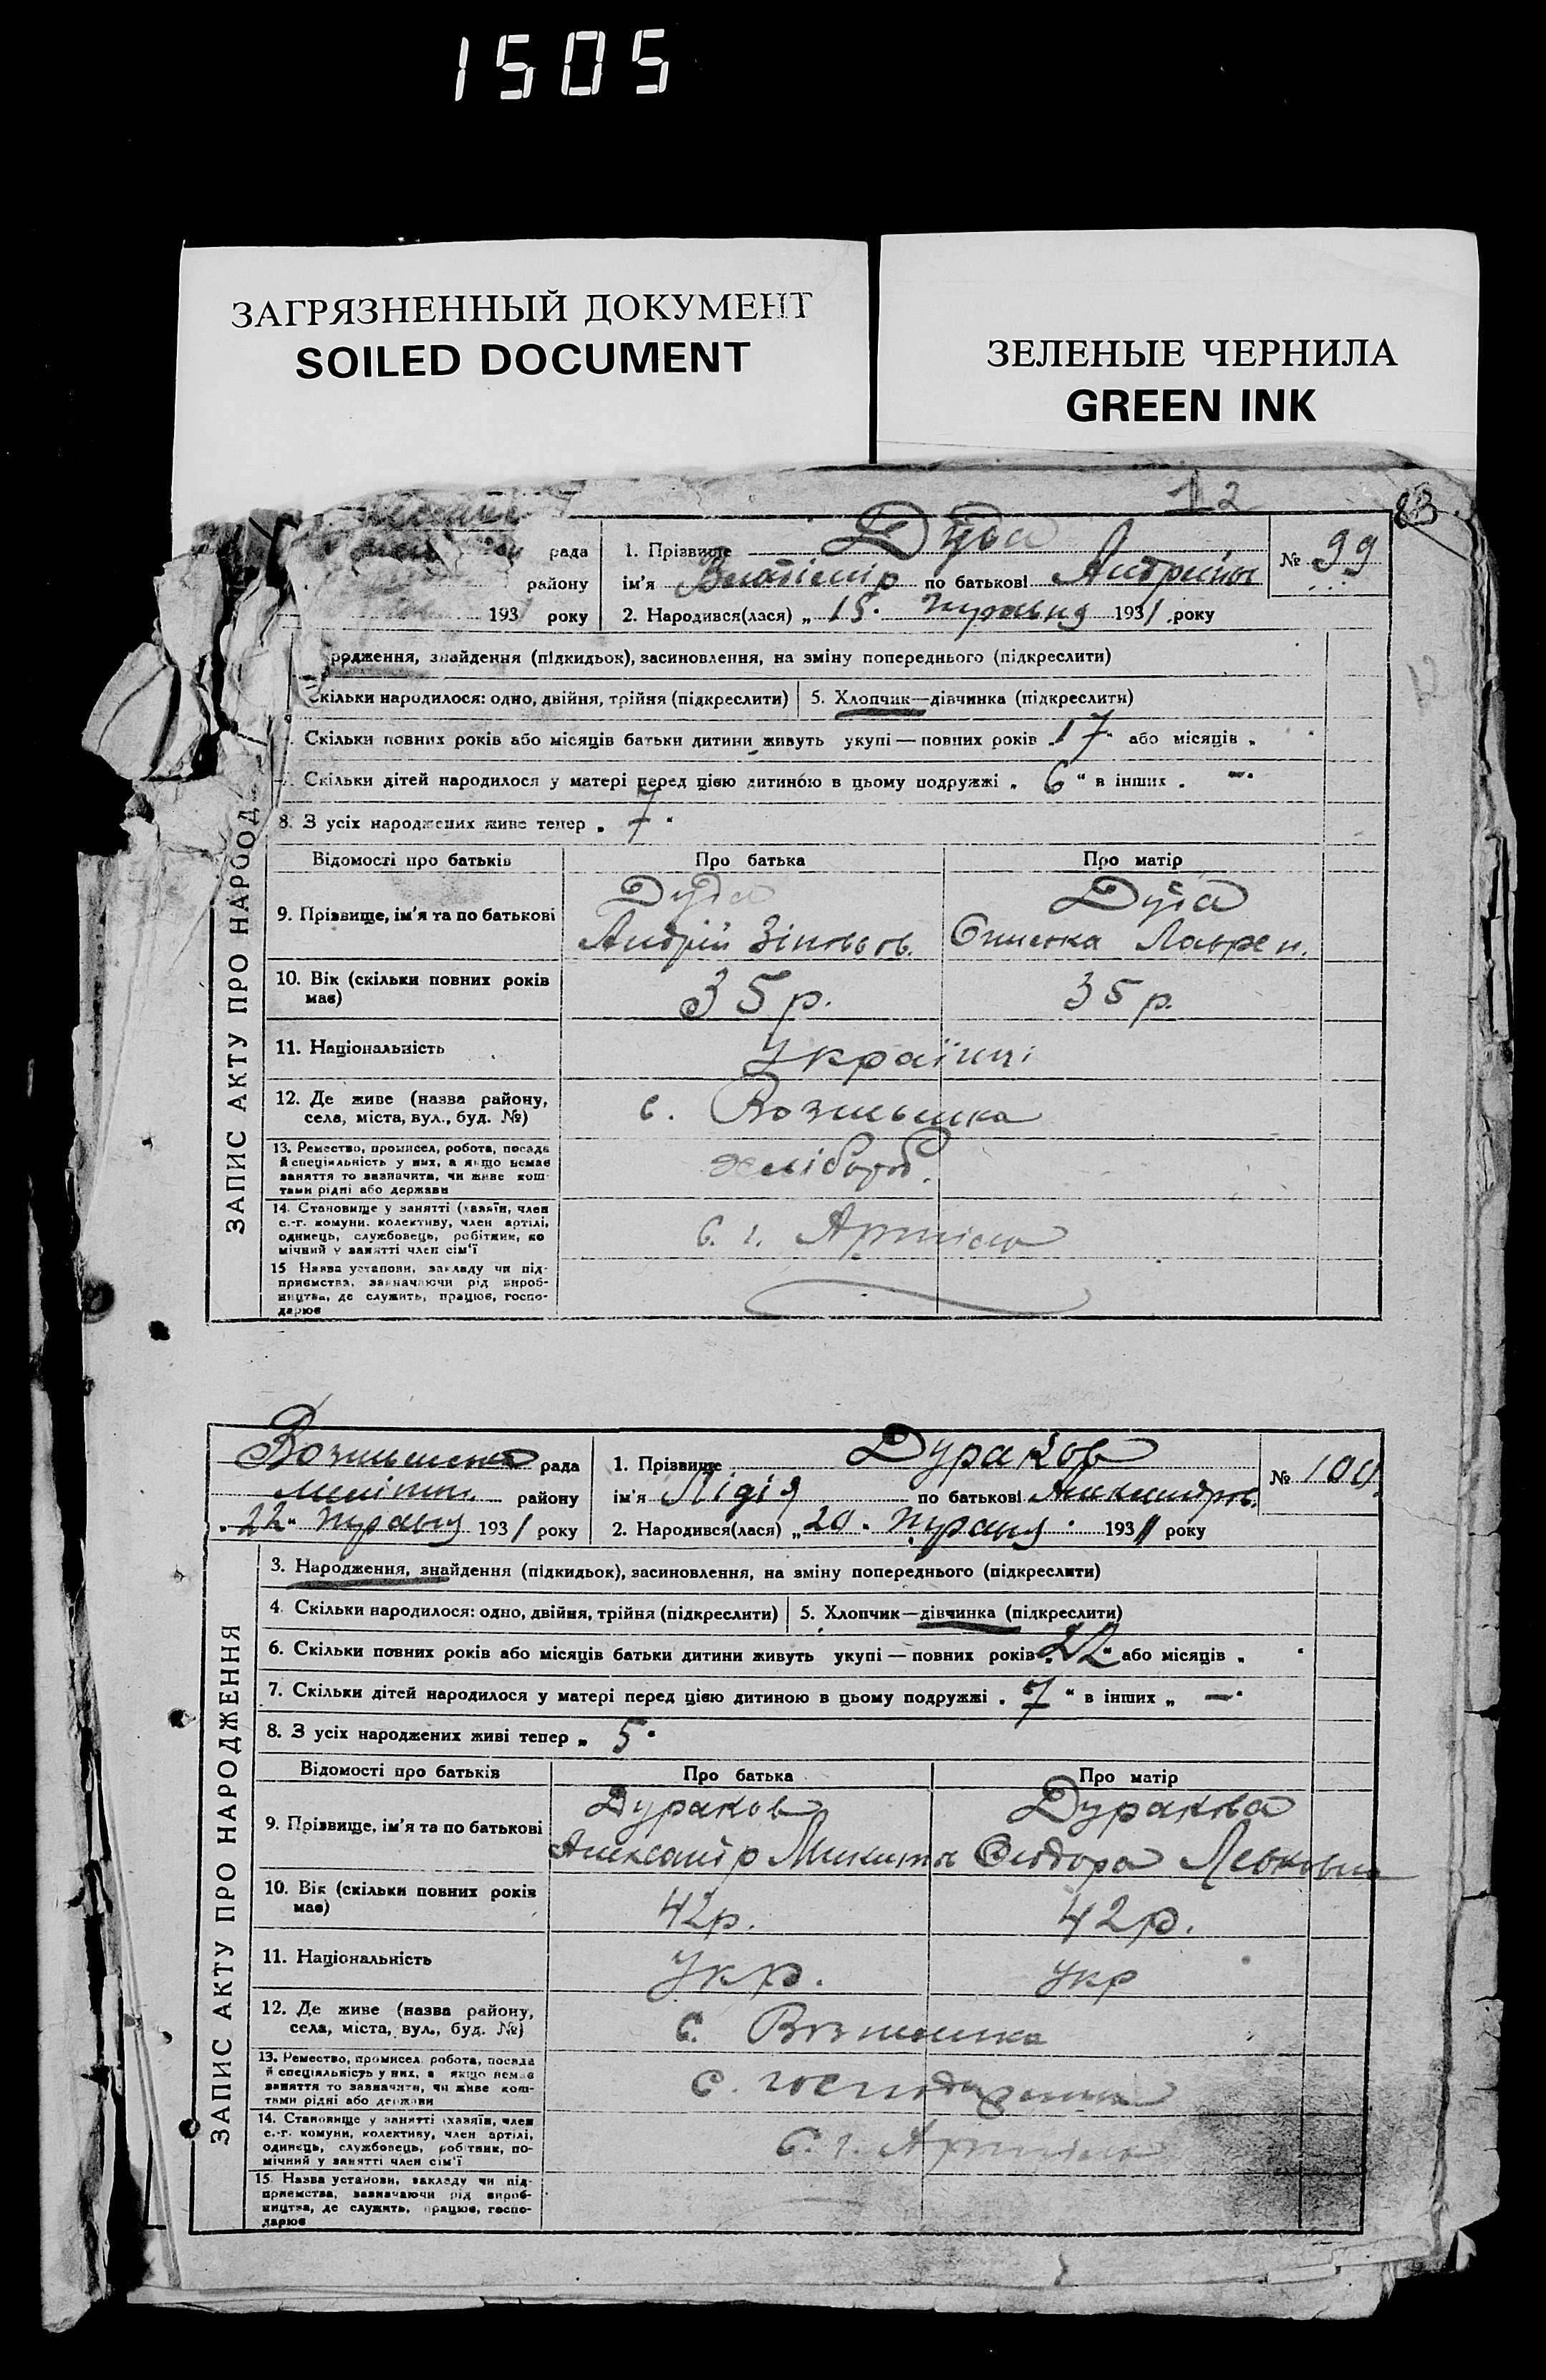 1505
ЗАГРЯЗНЕННЫЙ ДОКУМЕНТ
SOILED DOCUMENT
ЗЕЛЕНЫЕ ЧЕРНИЛА
GREEN INK
12
рада
району
193 року
1. Прізвище Дуда
ім'я Владімір по батькові Андрійов
2. Народився(лася) „ 15. травня 1931 року
№ 99
родження, знайдення (підкидьок), засиновлення, на зміну попереднього (підкреслити)
Скільки народилося: одно, двійня, трійня (підкреслити) 5. Хлопчик—дівчинка (підкреслити)
Скільки повних років або місяців батьки дитини живуть укупі — повних років 17 або місяців „
Скільки дітей народилося у матері перед цією дитиною в цьому подружжі „ 6 “ в інших . —
8. З усіх народжених живе тепер „ 7
Відомості про батьків Про батька Про матір
9. Прізвище, ім'я та по батькові
Дуда
Андрій Зіновьов.
Дуда
Лаврен.
10. Вік (скільки повних років має) 35 р. 35 р.
11. Національність Українці
12. Де живе (назва району,
села, міста, вул., буд. №) с. Возньшка
13. Ремество, промисел, робота, посада
й спеціяльність у них, а якщо немає
заняття то зазначити, чи живе кош-
тами рідні або держави
хлібороб.
14. Становище у занятті (хазяїн, член
с.-г. комуни, колективу, член артілі,
одинець, службовець, робітник, по
мічний у занятті член сім'ї
с. г. Артіль
15 Назва установи, закладу чи під-
приємства, зазначаючи рід вироб-
ництва, де служить, працює, госпо-
дарює
ЗАПИС АКТУ ПРО НАРОД
рада
району
„22“ травня 1931 року
1. Прізвище Дураков
ім'я Лідія по батькові Александров.
2. Народився(лася) „20. травня 1931 року
№ 100.
3. Народження, знайдення (підкидьок), засиновлення, на зміну попереднього (підкреслити)
4. Скільки народилося: одно, двійня, трійня (підкреслити) 5. Хлопчик—дівчинка (підкреслити)
6. Скільки повних років або місяців батьки дитини живуть укупі — повних років „22“ або місяців „
7. Скільки дітей народилося у матері перед цією дитиною в цьому подружжі . 7 “ в інших „ —
8. З усіх народжених живі тепер „ 5
Відомості про батьків Про батька Про матір
9. Прізвище, ім'я та по батькові
Дураков
Александр Микитов
Дуракова
Федора Левковна
10. Вік (скільки повних років має) 42р. 42р.
11. Національність Укр. Укр
12. Де живе (назва району,
села, міста, вул., буд. №) с.
13. Ремество, промисел, робота, посада
й спеціяльність у них, а якщо немає
заняття то зазначити, чи живе кош-
тами рідні або держави
с.
14. Становище у занятті (хазяїн, член
с.-г. комуни, колективу, член артілі,
одинець, службовець, робітник, по-
мічний у занятті член сім'ї
с. г. Артіль
15. Назва установи, закладу чи під-
приємства, зазначаючи рід вироб-
ництва, де служить, працює, госпо-
дарює
ЗАПИС АКТУ ПРО НАРОДЖЕННЯ